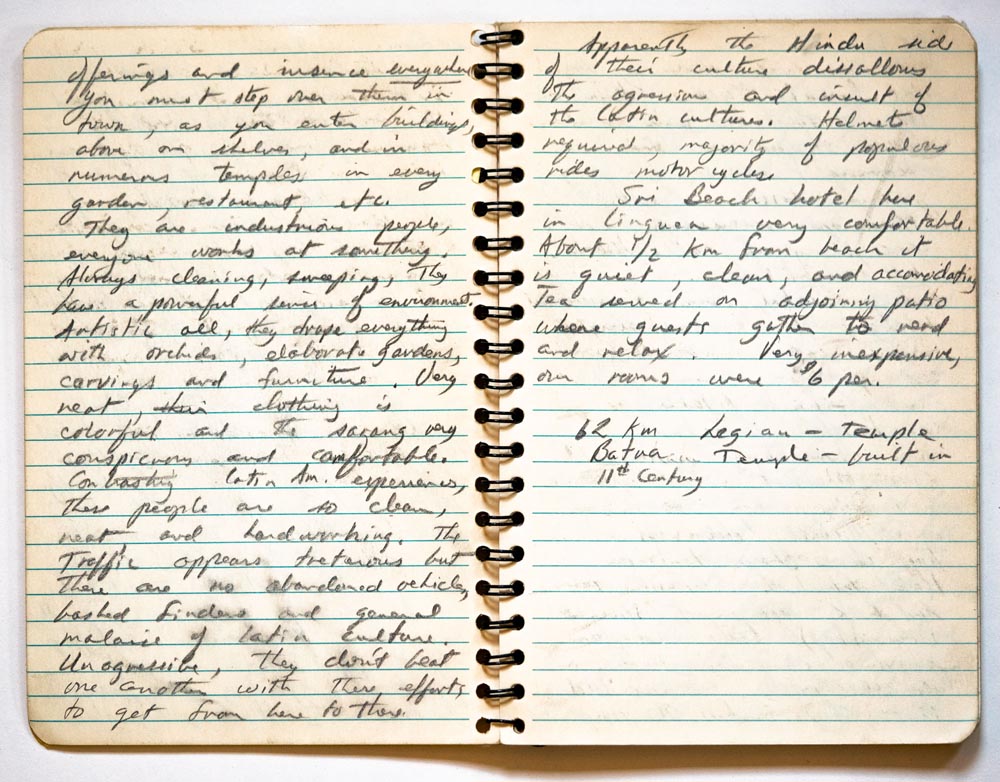 offerings and insence everywhere
you must step over them in
town, as you enter buildings,
above on shelves, and in
numerous temples in every
garden, restaurant etc.
They are industrious people,
everyone works at something
Always cleaning, sweeping, They
have a powerful sense of environment.
Artistic all, they drape everything
with orchids, elaborate gardens,
carvings and furniture. Very
neat, their clothing is
colorful and the sarang very
conspicuous and comfortable.
Contrasting Latin Am. experiences,
these people are so clean,
neat and hardworking. The
Traffic appears but
there are no abandoned vehicles,
bashed finders and general
malaise of latin culture.
Unagressive, they don't beat
one another with there efforts
to get from here to there.
Apparently the Hindu side
of their culture dissallows
The agression and insult of
the latin cultures. Helmets
required, majority of populous
rides motorcycles
Sri Beach hotel here
in very comfortable.
About 1/2 Km from beach it
is quiet, clean, and accomodating
Tea served on adjoining patio
where guests gather to read
and relax. Very inexpensive,
our rooms were $6 per.
62 Km Legian - temple
Batua Temple - built in
11th Century